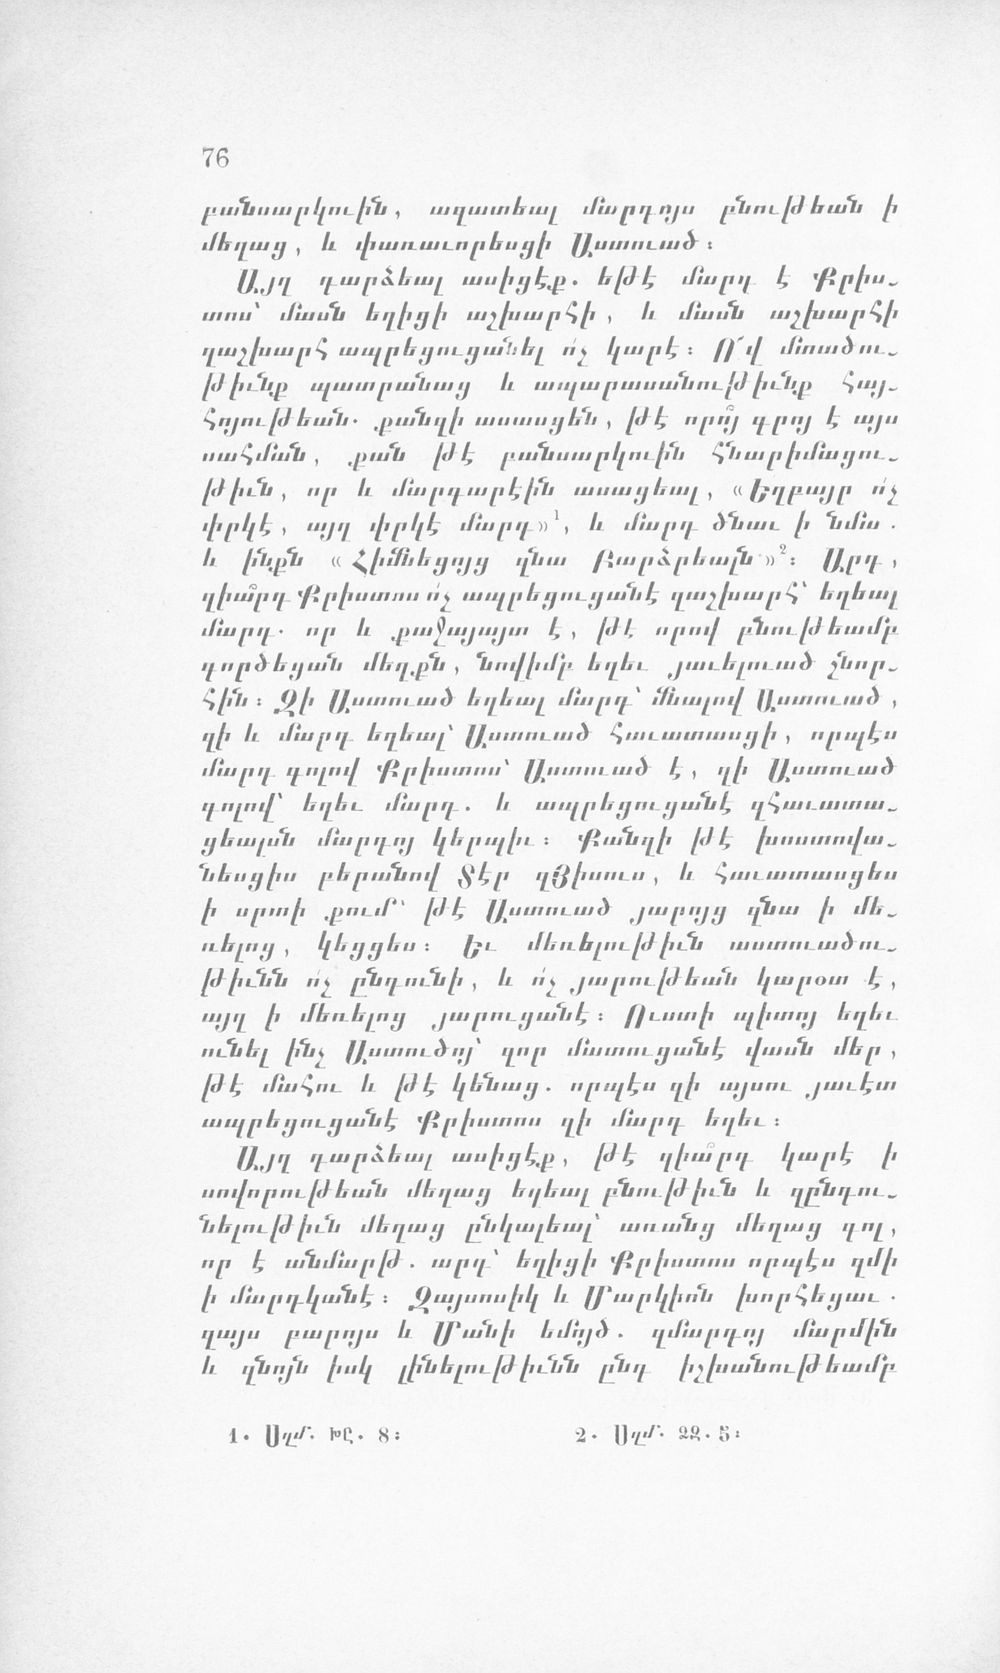 76
բանսարկուին, ազատեալ մարդոյս բնութեան ի
մեղաց, և փառաւորեսցի Աստուած։
Այղ դարձեալ ասիցէք. եթէ մարդ է Քրիս֊
տոս՝ մասն եղիցի աշխարհի, և մասն աշխարհի
զաշխարհ ապրեցուցանել ո՛չ կարէ։ Ո՜վ մոռածու֊
թիւնք պատրանաց և ապարասանութիւնք հայ֊
հոյութեան. քանզի ասասցեն, թէ որո՞յ գրոյ է այս
սահման, քան թէ բանսարկուին հնարիմացու֊
թիւն, որ և մարգարէին ասացեալ, «Եղբայր ո՛չ
փրկէ, այղ փրկէ մարդ»¹, և մարդ ծնաւ ի նմա.
և ինքն «Հիմնեցոյց զնա Բարձրեալն»²։ Արդ,
զիա՞րդ Քրիստոս ո՛չ ապրեցուցանէ զաշխարհ՝ եղեալ
մարդ. որ և քաջայայտ է, թէ որով բնութեամբ
գործեցան մեղքն, նովիմբ եղեւ յաւելուած շնոր֊
հին։ Զի Աստուած եղեալ մարդ՝ մնալով Աստուած,
զի և մարդ եղեալ՝ Աստուած հաւատասցի, որպէս
մարդ գոլով Քրիստոս՝ Աստուած է, զի Աստուած
գոլով՝ եղեւ մարդ. և ապրեցուցանէ զհաւատա֊
ցեալսն մարդոյ կերպիւ։ Քանզի թէ խոստովա֊
նեսցիս բերանով Տէր զՅիսուս, և հաւատասցես
ի սրտի քում՝ թէ Աստուած յարոյց զնա ի մե֊
ռելոց, կեցցես։ Եւ մեռելութիւն աստուածու֊
թիւնն ո՛չ ընդունի, և ո՛չ յարութեան կարօտ է,
այղ ի մեռելոց յարուցանէ։ Ուստի պիտոյ եղեւ
ունել ինչ Աստուծոյ՝ զոր մատուցանէ վասն մեր,
թէ մահու և թէ կենաց. որպէս զի այսու յաւէտ
ապրեցուցանէ Քրիստոս զի մարդ եղեւ։
Այղ դարձեալ ասիցէք, թէ զիա՞րդ կարէ ի
սովորութեան մեղաց եղեալ բնութիւն և զընդու֊
նելութիւն մեղաց ընկալեալ՝ առանց մեղաց գոլ,
որ է անմարթ. արդ՝ եղիցի Քրիստոս որպէս զմի
ի մարդկանէ։ Զայսոսիկ և Մարկիոն խորհեցաւ.
զայս բարոյս և Մանի եմոյծ. զմարդոյ մարմին
և զնոյն իսկ լինելութիւնն ընդ իշխանութեամբ
1. Սղմ. ԽԸ. 8։
2. Սղմ. ՁԶ. 5։